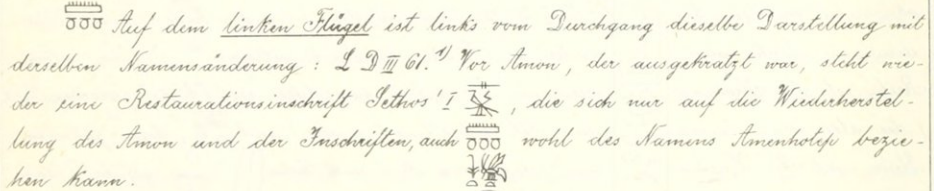 Auf dem linken Flügel ist links vom Durchgang dieselbe Darstellung mit
derselben Namensänderung: L D III 61.¹) Vor Amon, der ausgekratzt war, steht wie-
der eine Restaurationsinschrift Sethos' I , die sich nur auf die Wiederherstel-
lung des Amon und der Inschriften, auch wohl des Namens Amenhotep bezie-
hen kann.